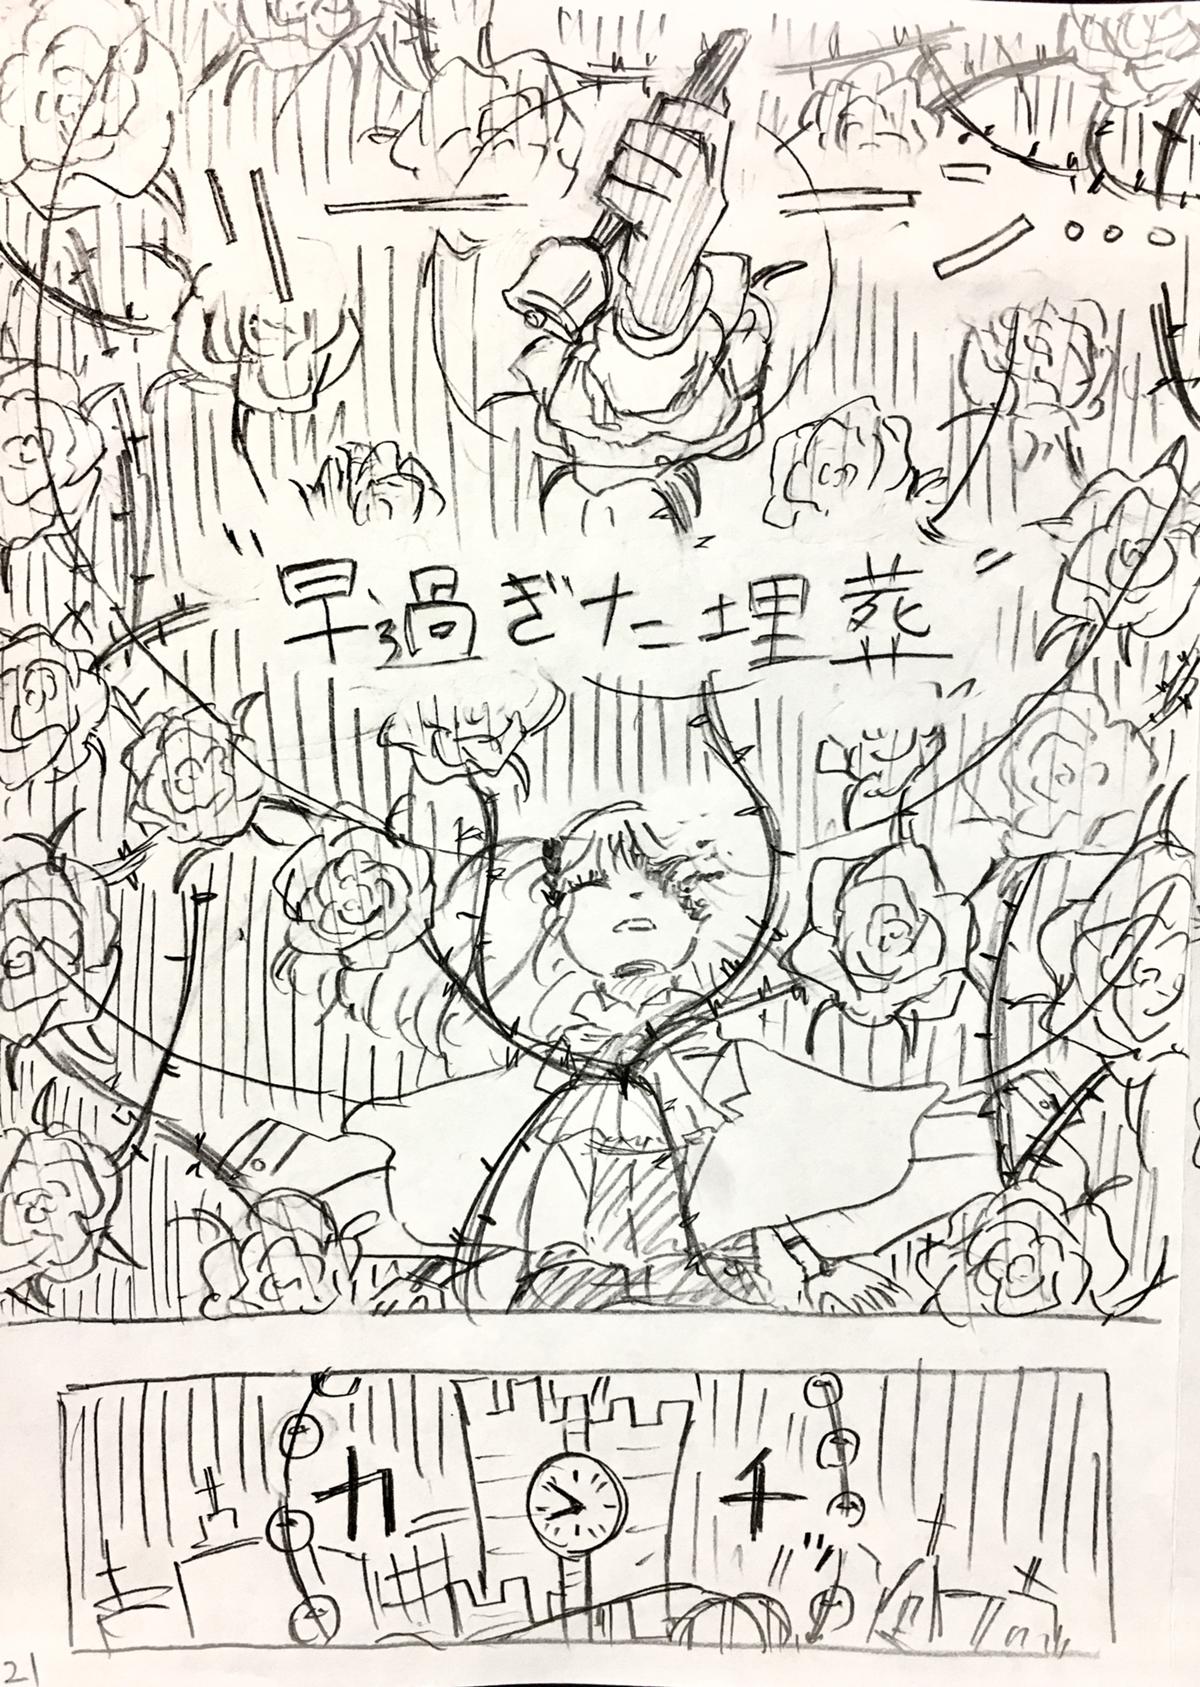 リーーン。。。
“早過ぎた埋葬”
カチ
21